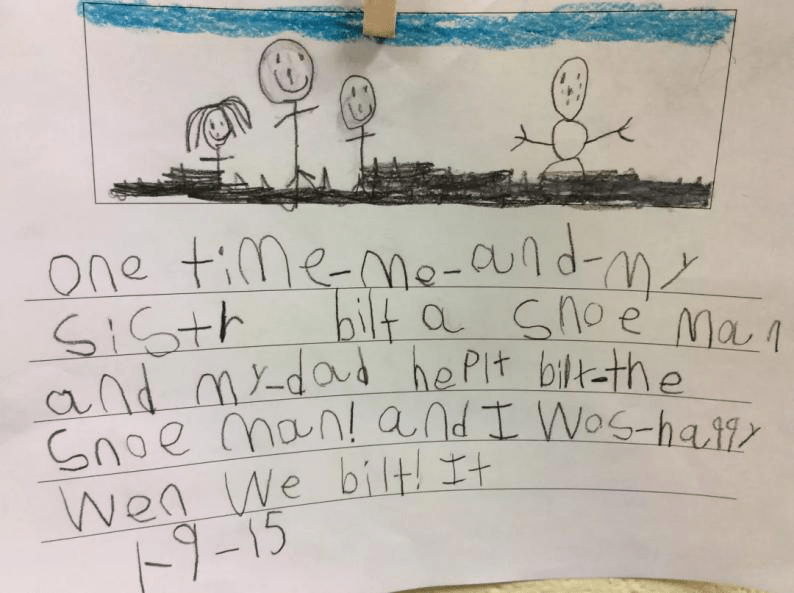 one time-me-and-my
Sistr bilt a Snoe Man
and my-dad heplt bilt-the
Snoe Man! and I Wos-happy
Wen We bilt! It
1-9-15